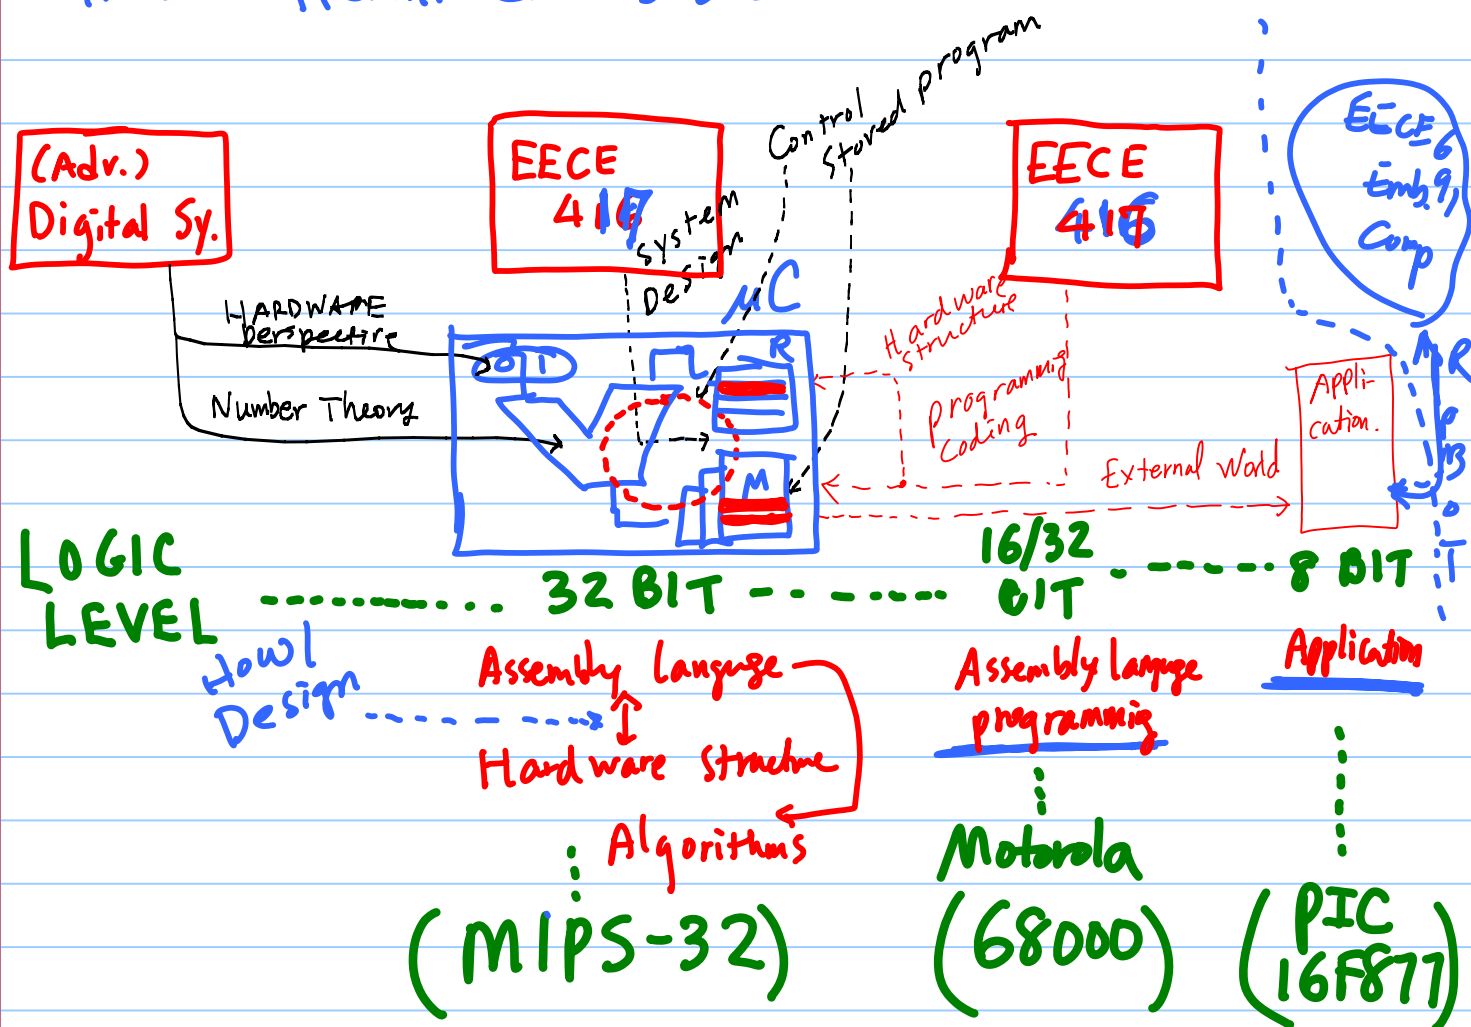 Control
stored program
(Adv.)
Digital Sy.
EECE
417
System
Design
EECE
416
EECE 6
Emb.
Comp
μC
HARDWARE
perspective
Number Theory
0 1
R
M
Hardware
structure
Programmig
Coding
External World
Appli-
cation.
LOGIC
LEVEL
32 BIT
16/32
BIT
8 BIT
HowI
Design
Assembly Languge
Hardware Structure
Algorithms
Assembly languge
programmig
Application
Motorola
(MIPS-32)
(68000)
(PIC
16F877)